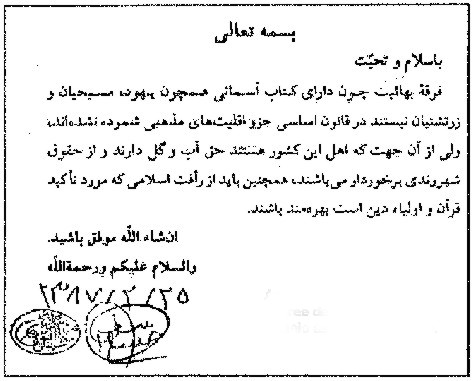 بسمه تعالی
باسلام و تحیّت
فرقهٔ بهائیت چون دارای کتاب آسمانی همچون یهود، مسیحیان و
زرتشتیان نیستند در قانون اساسی جزو اقلیت‌های مذهبی شمرده نشده‌اند،
ولی از آن جهت که اهل این کشور هستند حق آب و گل دارند و از حقوق
شهروندی برخوردار می‌باشند، همچنین باید از رأفت اسلامی که مورد تأکید
قرآن و اولیاء دین است بهره‌مند باشند.
انشاء اللّه موفق باشید.
والسلام علیکم ورحمةاللّه
۱۳۸۷/۲/۲۵